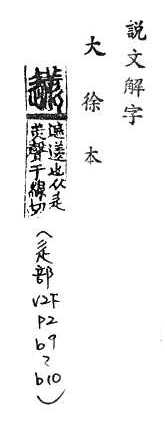 說文解字
大徐本
遮䢭也从辵
羨聲于線切
(辵部
V2下
P2
b9
~
b10)